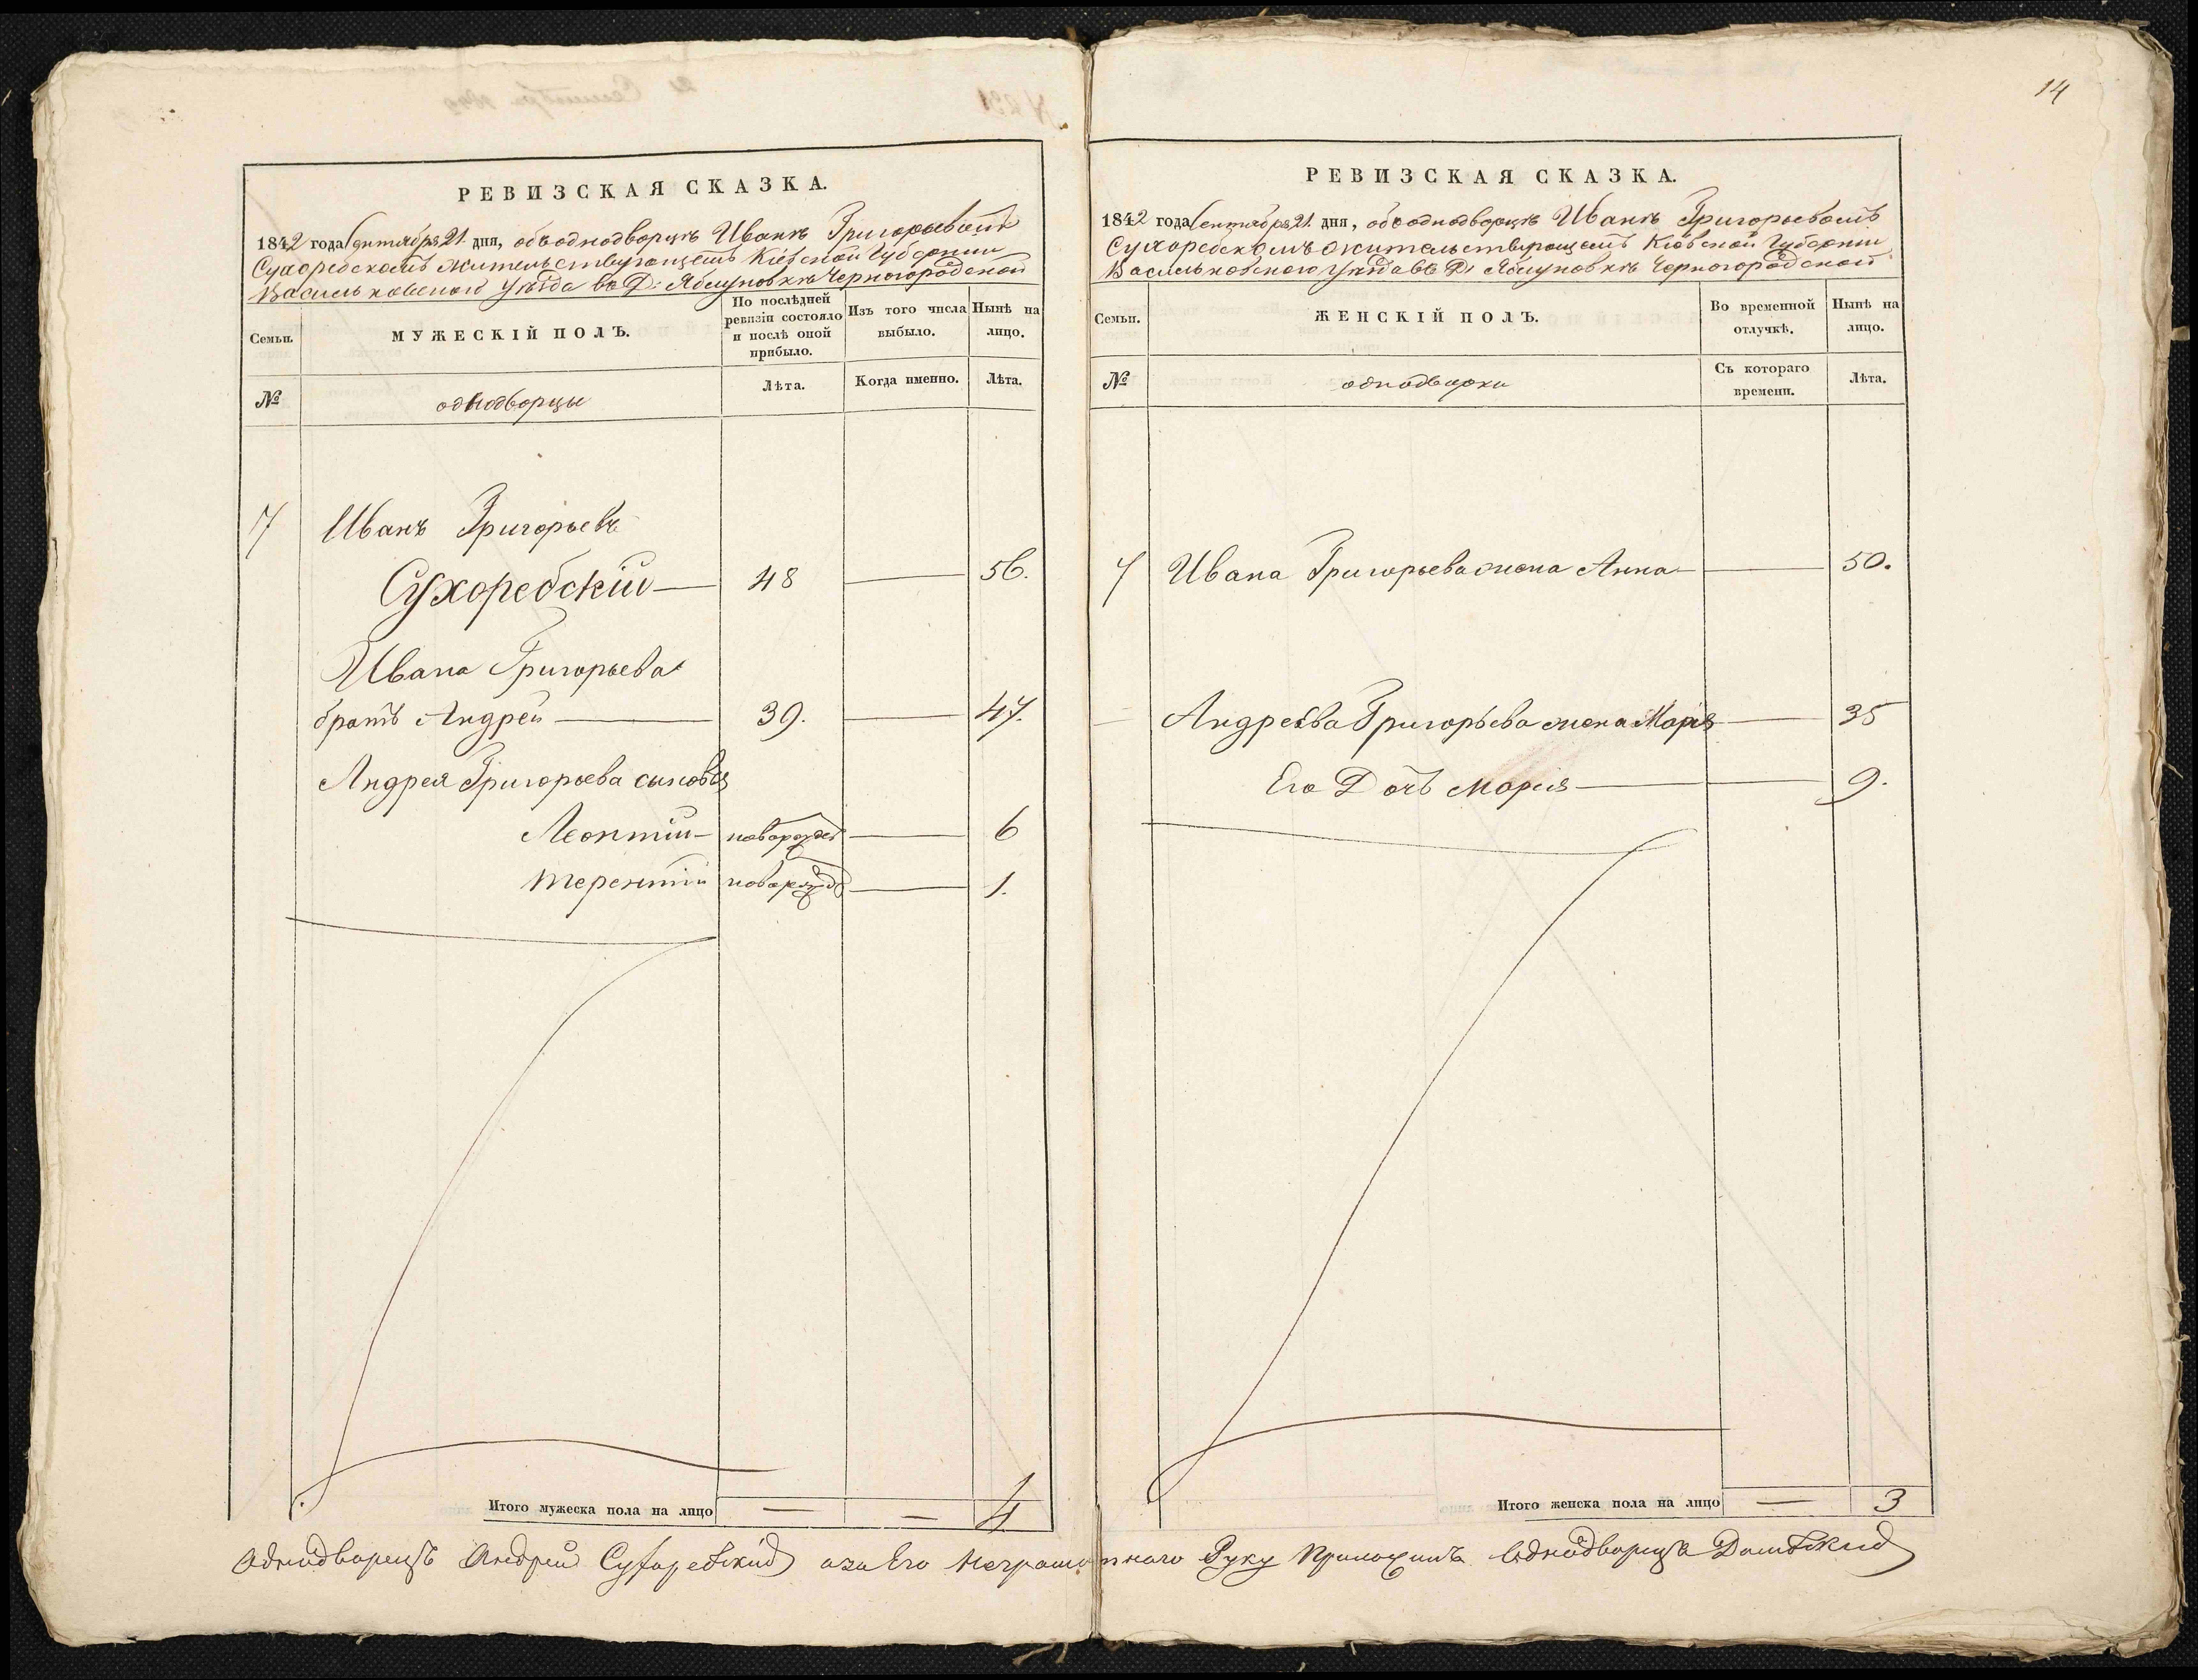 14
РЕВИЗСКАЯ СКАЗКА.
1842 года Сентября 21 дня, объ однодворцѣ Иванѣ Григорьевомъ
Сухоребскомъ жительствующемъ Кіевской Губерніи
Васильковского Уѣзда въ Д: Яблуновкѣ Черногородской
Семьи.
МУЖЕСКІЙ ПОЛЪ.
По послѣдней ревизіи состояло и послѣ оной прибыло.
Изъ того числа выбыло.
Нынѣ на лицо.
№
однодворцы
Лѣта.
Когда именно.
Лѣта.
7 Иванъ Григорьевъ
Сухоребскій — 48 — 56.
Ивана Григорьева
братъ Андрей — 39. — 47.
Андрея Григорьева сыновья
Леонтій — новорожден — 6
Терентій новорожд — 1.
Итого мужеска пола на лицо — — 4
РЕВИЗСКАЯ СКАЗКА.
1842 года Сентября 21. дня, объ однодворцѣ Иванѣ Григорьевомъ
Сухоребскомъ жительствующемъ Кіевской Губерніи
Васильковского Уѣзда въ Д: Яблуновкѣ Черногородской
Семьи.
ЖЕНСКІЙ ПОЛЪ.
Во временной отлучкѣ.
Нынѣ на лицо.
№
однодворки
Съ котораго времени.
Лѣта.
7 Ивана Григорьева жена Анна — 50.
Андреева Григорьева жена Марія — 35
Его Дочь Марія — 9.
Итого женска пола на лицо — 3
Однодворецъ Андрей Сухоребский а за Его Неграмотнаго Руку Приложилъ Однодворецъ